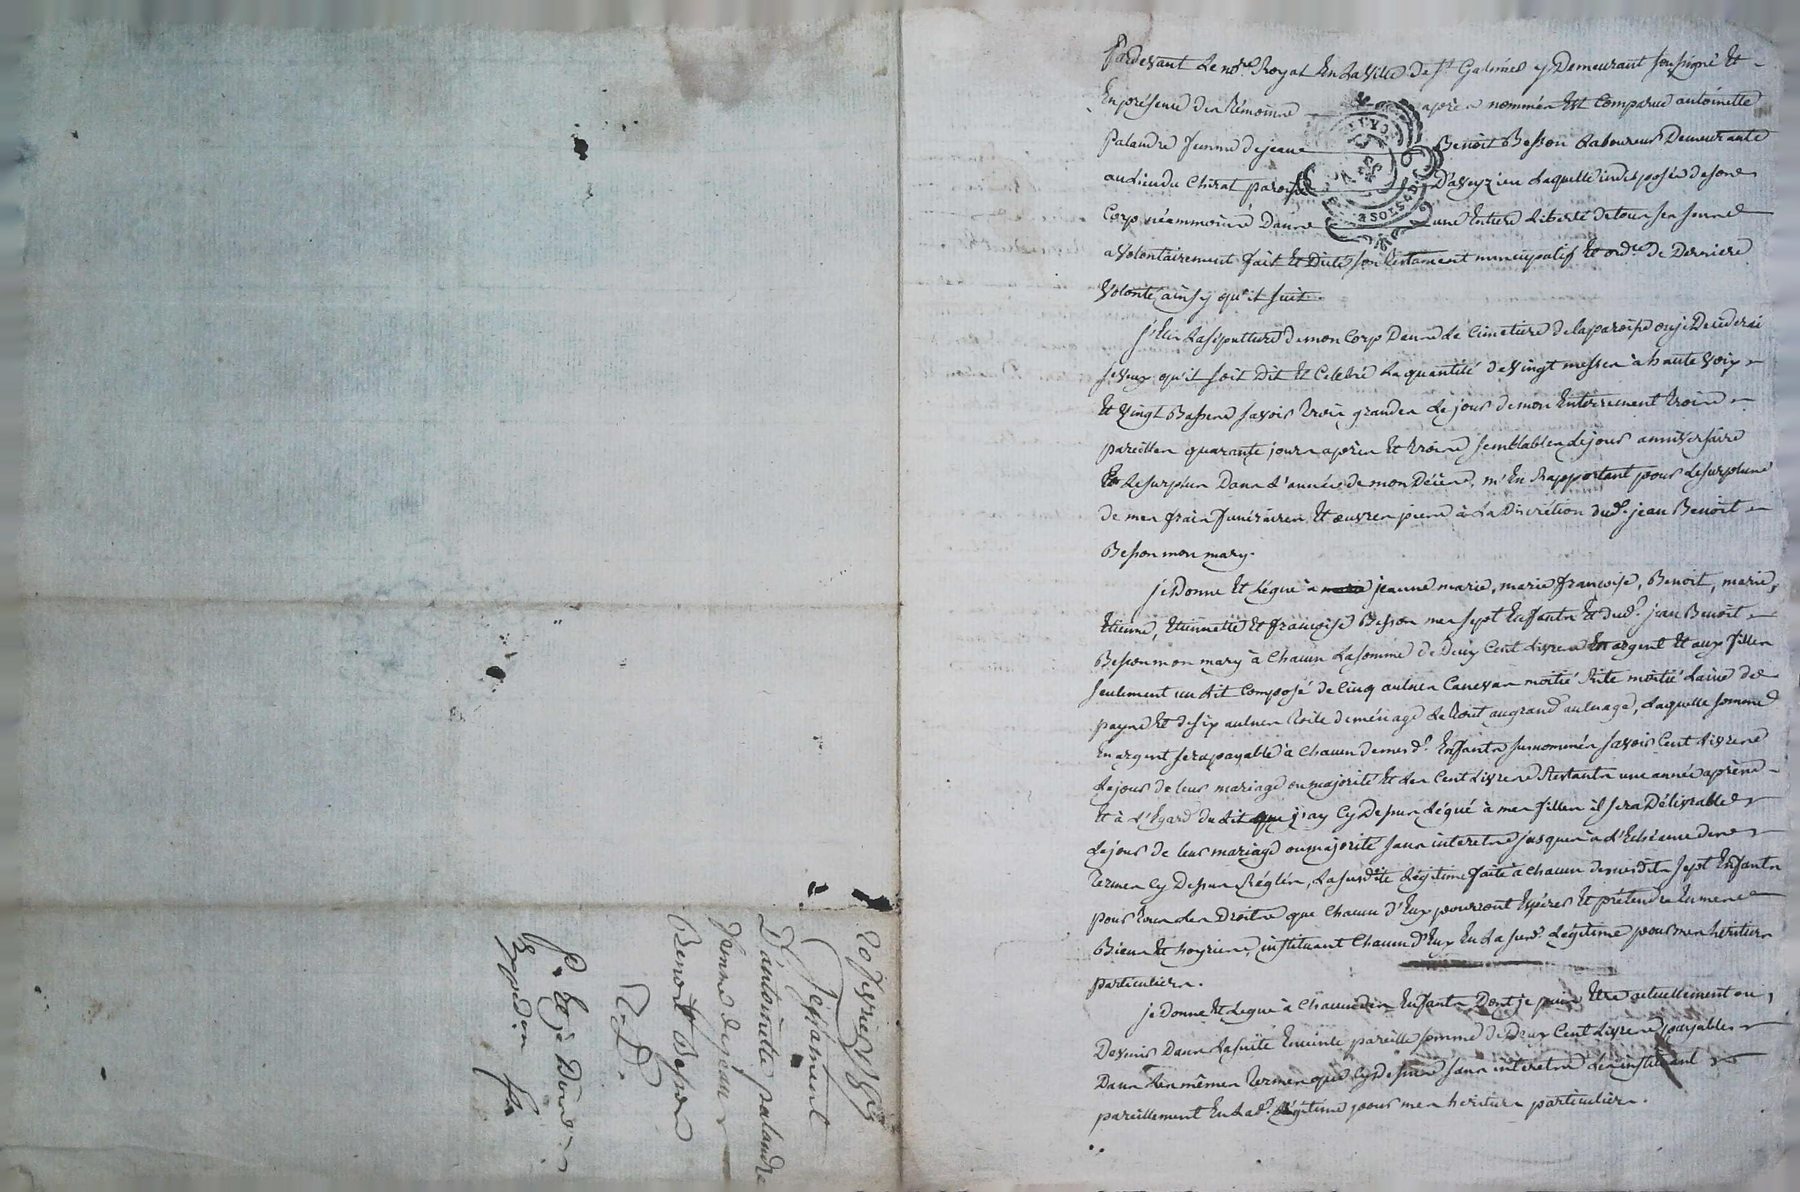 Pardevant Le no.re Royal En La Ville De St Galmier y Demeurant soussigné Et
En présence des Témoins après nommés Est Comparue antoinette
Palandre femme de jean Benoit Besson Laboureur Demeurante
au Lieu du Chirat paroisse D'aveyzieu Laquelle indisposée de son
Corp néammoins Dans une Entiere Liberté de tous ses sens
a Volontairement fait Et Dicté son testament nuncupatif Et ord.ce de Derniere
Volonté ainsy qu'il suit.
j'Elis La sépulture de mon Corp Dans Le Cimetiere de la paroisse ou je Décéderai
je veux qu'il soit Dit Et Celebré La quantité de Vingt messes à haute Voix
Et Vingt Basses savoir trois grandes Le jour de mon Enterrement trois
pareilles quarante jours après Et trois semblables Le jour anniversaire
Et Le surplus Dans L'année de mon Décès, m'En Rapportant pour Le surplus
de mes frais funéraires Et œuvres pies à La Discrétion dud. jean Benoit
Besson mon mary.
je Donne Et Légue à jeanne marie, marie françoise, Benoit, marie,
Etienne, Etiennette Et françoise Besson mes sept Enfants Et dud. jean Benoit
Besson mon mary à Chacun La somme de Deux Cent Livres En argent Et aux filles
seulement un Lit Composé de Cinq aulnes Canevas moitié Rite moitié Laine de
pays Et de six aulnes toile de ménage Le tout au grand aulnage, Laquelle somme
En argent sera payable à Chacun de mes d. Enfants susnommés savoir Cent Livres
Le jour de leur mariage ou majorité Et Les Cent Livres Restants une année après
Et à L'Egard du Lit que j'ay Cy Dessus Légué à mes filles il sera Délivrable
Le jour de leur mariage ou majorité sans interets jusques à L'Echéance des
termes Cy Dessus Réglés, La susdite Légitime faite à Chacun de mesdits sept Enfants
pour tous Les Droits que Chacun d'Eux pourront Espérer Et prétendre sur mes
Biens Et hoyries, instituant Chacun d'Eux En La sus d. Légitime pour mes héritiers
particuliers.
je Donne Et Legue à Chacun des Enfants Dont je puis Etre actuellement ou
Devenir Dans La suite Enceinte pareille somme de Deux Cent Livres payables
Dans Les mêmes termes que Cy Dessus sans interets Les instituant
pareillement En La d. Légitime pour mes heritiers particuliers.
Testament
D'antoinette palandre
femme de jean
Benoit Besson